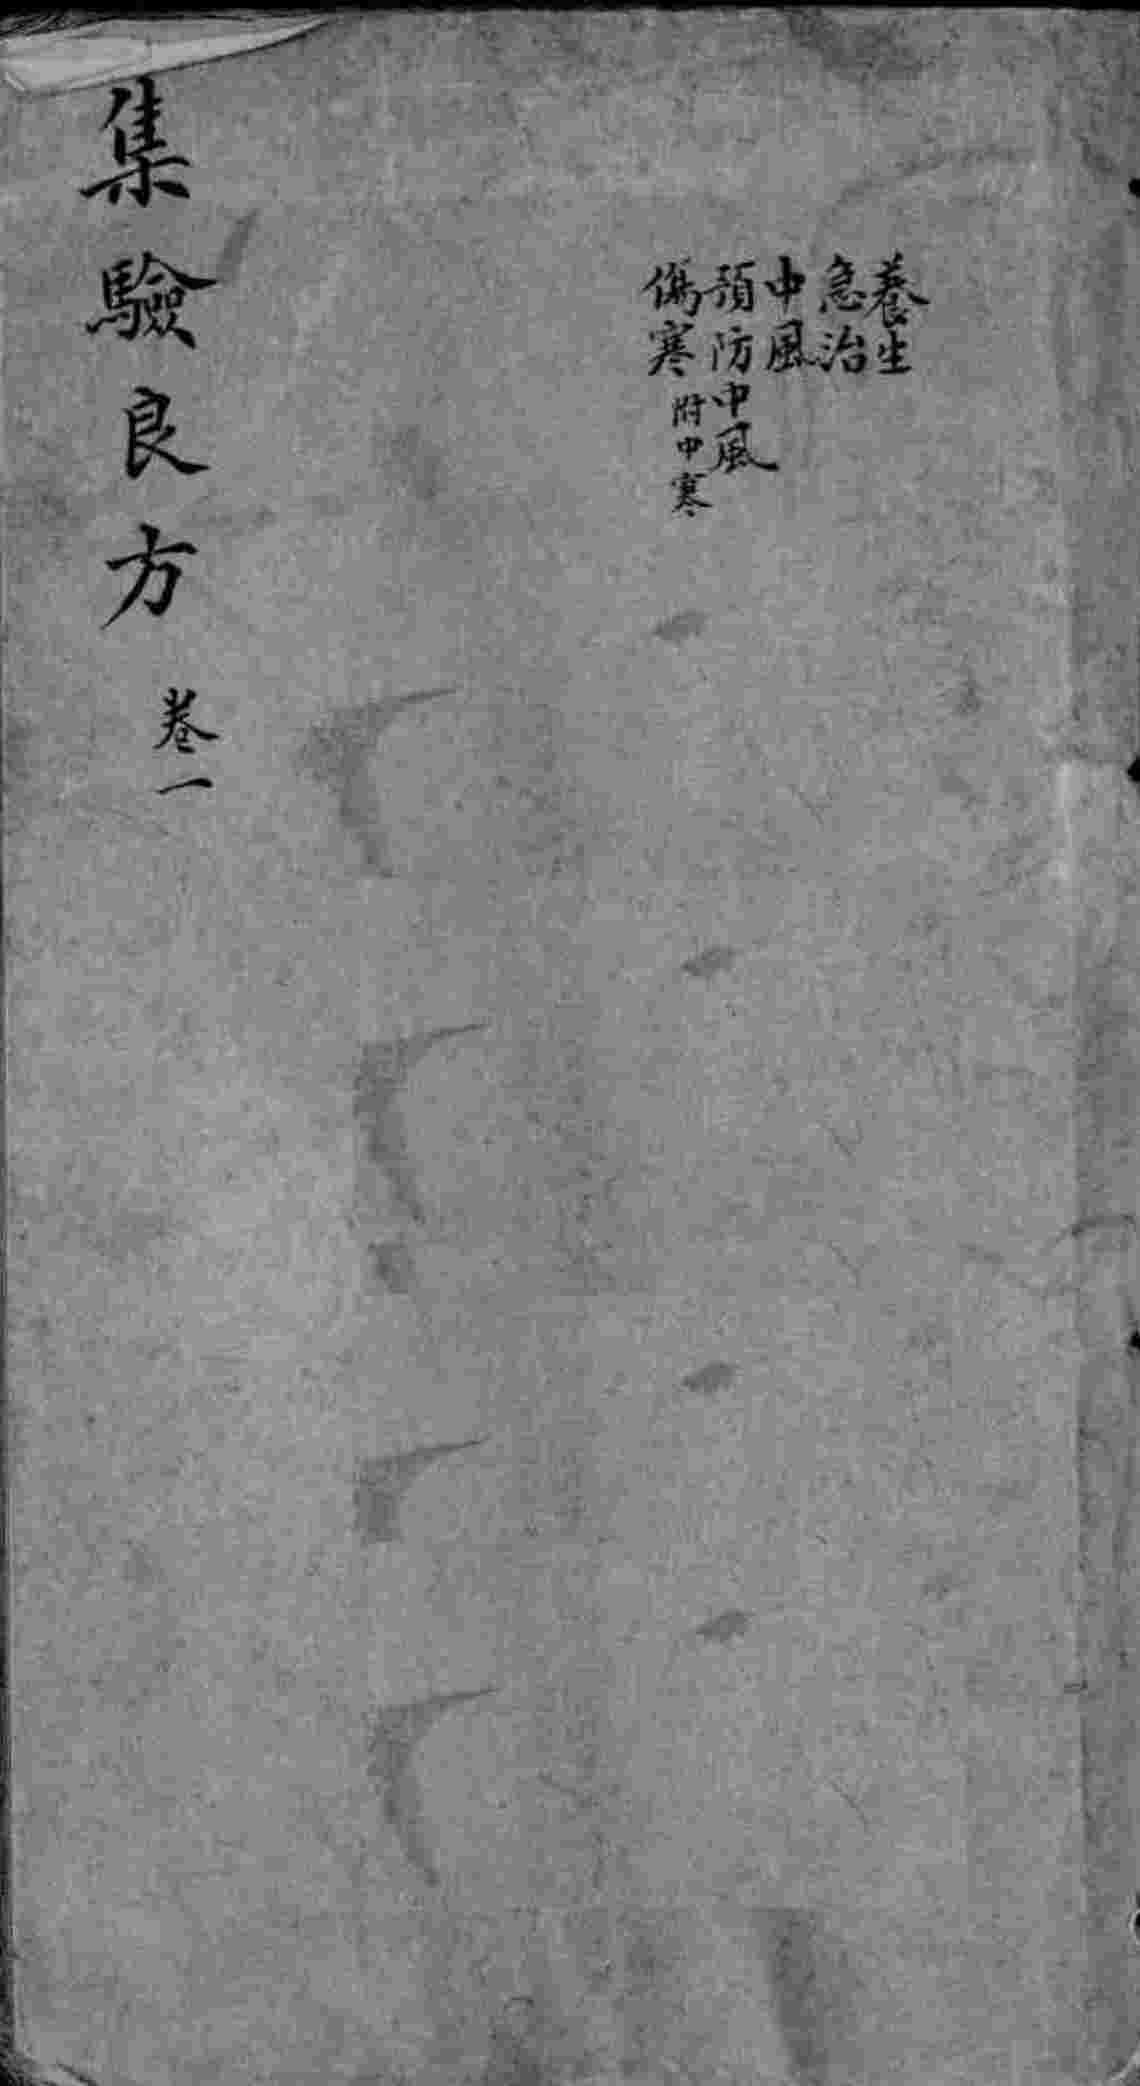 養生
急治
中風
預防中風
傷寒附中寒
集驗良方 卷一